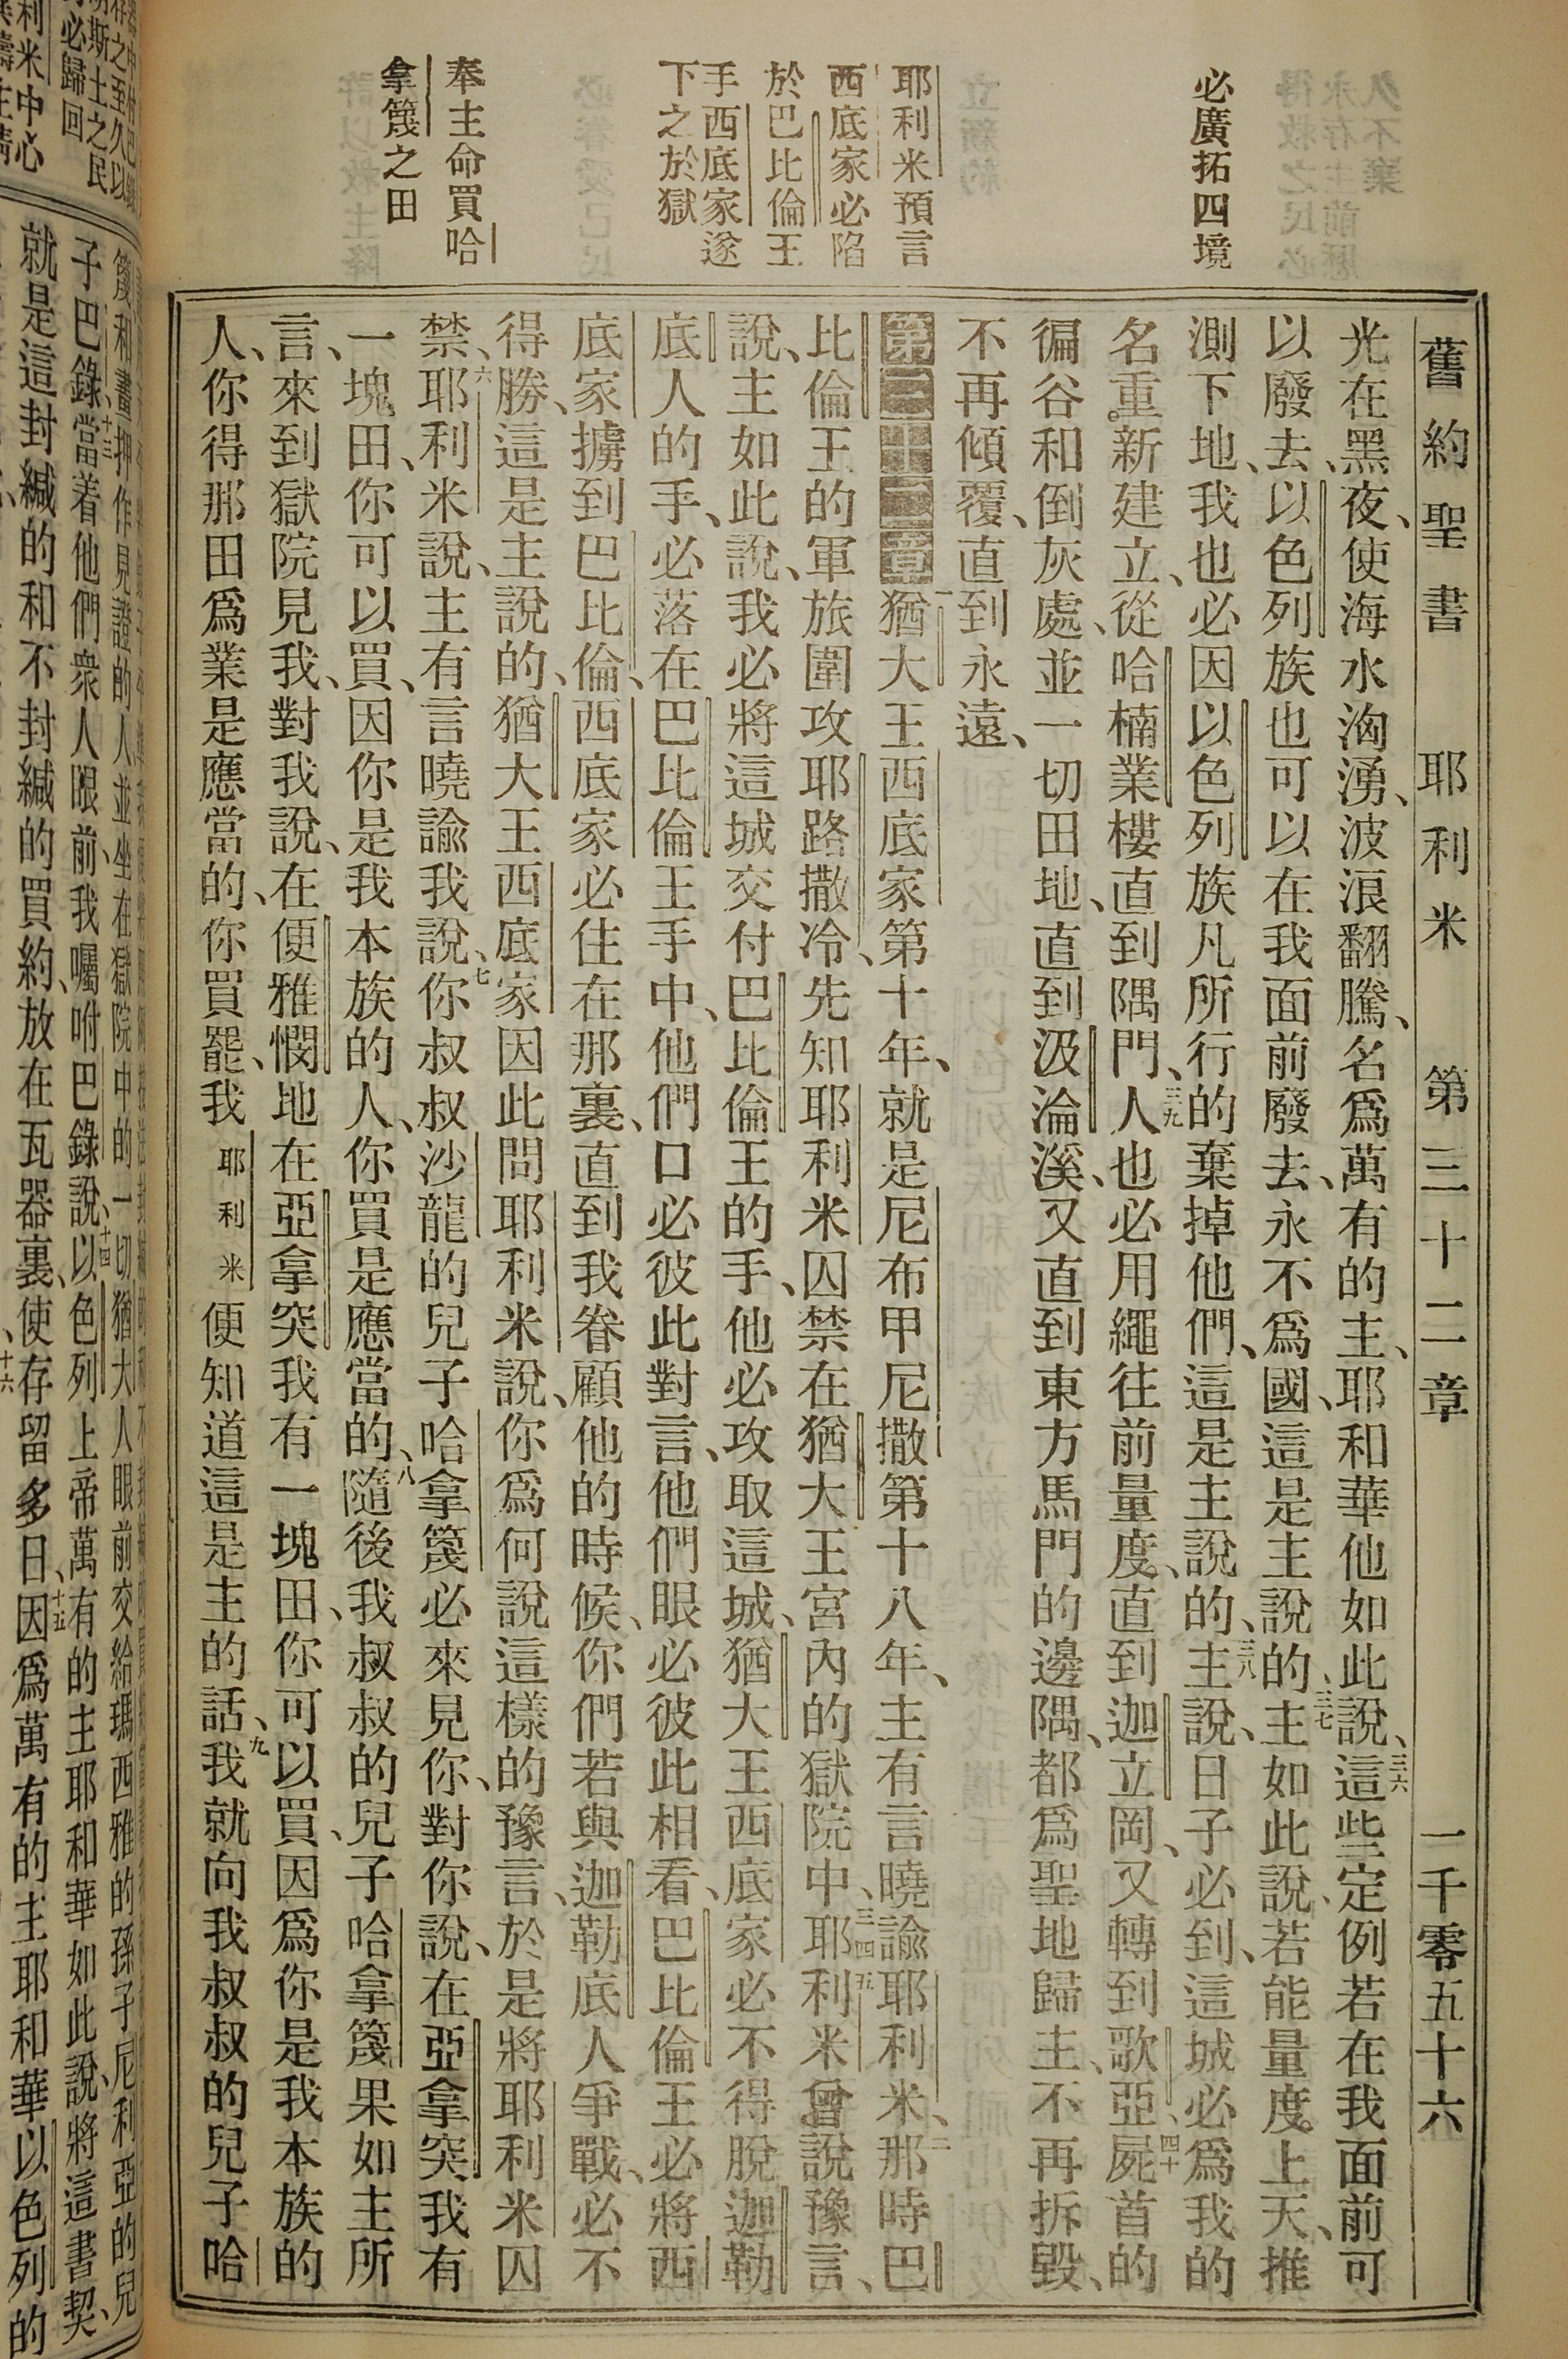 舊約聖書　耶利米　第三十二章　一千零五十六
必廣拓四境
耶利米預言
西底家必陷
於巴比倫王
手西底家遂
下之於獄
奉主命買哈
拿篾之田
光在黑夜、使海水洶湧、波浪翻騰、名爲萬有的主、耶和華他如此說、三六這些定例若在我面前可
以廢去、以色列族也可以在我面前廢去、永不爲國、這是主說的、三七主如此說、若能量度上天、推
測下地、我也必因以色列族凡所行的棄掉他們、這是主說的、三八主說、日子必到、這城必爲我的
名重新建立、從哈楠業樓直到隅門、三九人也必用繩往前量度、直到迦立岡、又轉到歌亞、四十屍首的
徧谷和倒灰處、並一切田地、直到汲淪溪、又直到東方馬門的邊隅、都爲聖地歸主、不再拆毀、
不再傾覆、直到永遠、
第三十二章一猶大王西底家第十年、就是尼布甲尼撒第十八年、主有言曉諭耶利米、二那時巴
比倫王的軍旅圍攻耶路撒冷、先知耶利米囚禁在猶大王宮內的獄院中、三四五耶利米曾說豫言、
說、主如此說、我必將這城交付巴比倫王的手、他必攻取這城、猶大王西底家必不得脫迦勒
底人的手、必落在巴比倫王手中、他們口必彼此對言、他們眼必彼此相看、巴比倫王必將西
底家擄到巴比倫、西底家必住在那裏、直到我眷顧他的時候、你們若與迦勒底人爭戰、必不
得勝、這是主說的、猶大王西底家因此問耶利米說、你爲何說這樣的豫言、於是將耶利米囚
禁、六耶利米說、主有言曉諭我說、七你叔叔沙龍的兒子哈拿篾必來見你、對你說、在亞拿突我有
一塊田、你可以買、因你是我本族的人、你買是應當的、八隨後我叔叔的兒子哈拿篾果如主所
言、來到獄院見我、對我說、在便雅憫地在亞拿突我有一塊田、你可以買、因爲你是我本族的
人、你得那田爲業是應當的、你買罷、我耶利米便知道這是主的話、九我就向我叔叔的兒子哈
篾和畫押作見證的人並坐在獄院中的一切猶大人眼前交給瑪西雅的孫子尼利亞的兒
子巴錄、十三當着他們衆人眼前、我囑咐巴錄說、十四以色列上帝萬有的主耶和華如此說、將這書契、
就是這封緘的和不封緘的買約、放在瓦器裏、使存留多日、十五因爲萬有的主耶和華以色列的